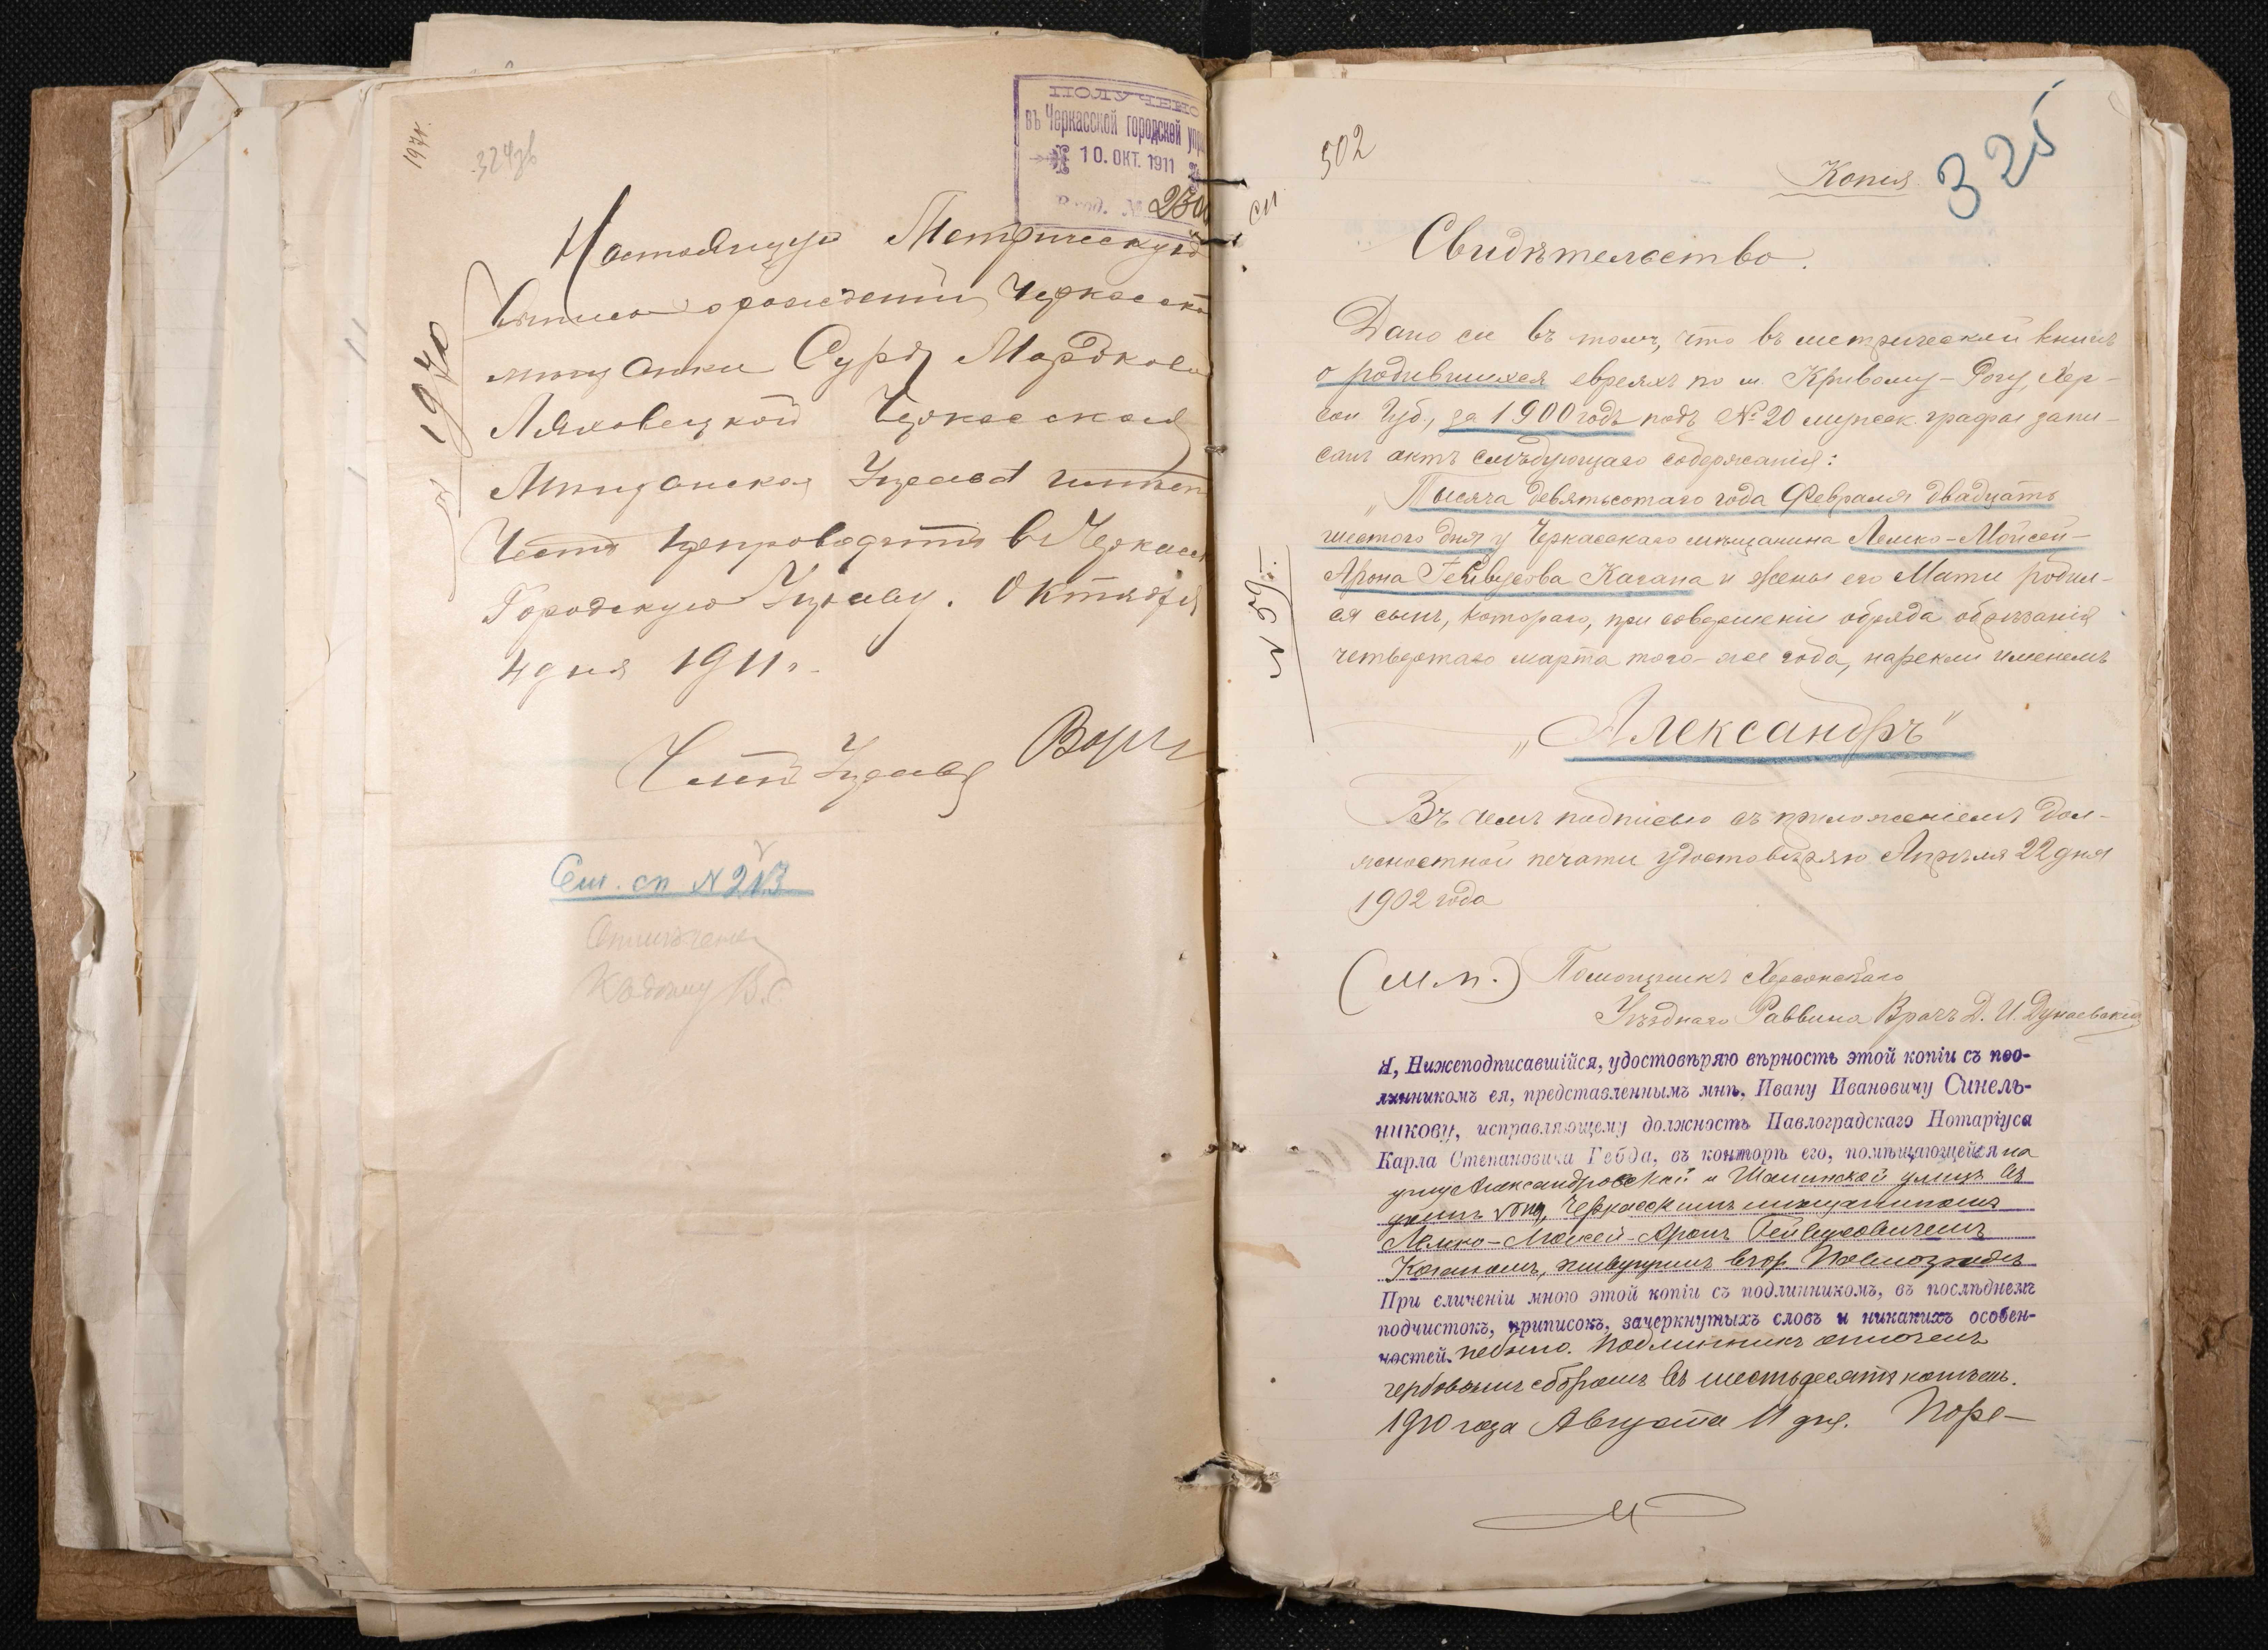 197г.
324зв
ПОЛУЧЕНО
въ Черкасской городской упр
10. ОКТ. 1911
Вход. №
Настоящую Метрическую
выпись о рождении Черкасской
мещанки Суры Мордковой
Ляховецкой Черкасская
Мещанская Управа имеет
Честь препроводить в Черкасск
Городскую Управу. Октября
4 дня 1911 г.
Член Управы
1970
Сем. сп N
502
325
Копія
Свидѣтельство.
Дано сіе въ томъ, что въ метрической книгѣ
о родившихся евреяхъ по м. Кривому-Рогу, Хер-
сон. Губ., за 1900 годъ подъ № 20 мужск. графы запи-
санъ актъ слѣдующаго содержанія:
„Тысяча девятьсотаго года Февраля двадцать
шестого дня у Черкасскаго мѣщанина Лемко-Мойсей-
Арона Гейвусова Кагана и жены его Мати родил-
ся сынъ, котораго, при совершеніи обряда обрѣзанія
четвертаго марта того-же года, нарекли именемъ
„Александръ"
Въ чемъ подписью съ приложеніемъ дол-
жностной печати удостовѣряю Апрѣля 22 дня
1902 года
(М.П.) Помощникъ Херсонскаго
Уѣзднаго Раввина Врачъ Д. И. Дунаевскій
Я, Нижеподписавшійся, удостовѣряю вѣрность этой копіи съ под-
линникомъ ея, представленнымъ мнѣ, Ивану Ивановичу Синель-
никову, исправляющему должность Павлоградскаго Нотаріуса
Карла Степановича Гебда, въ конторѣ его, помѣщающейся на
углу Александровской и улицъ въ
домѣ Черкасскимъ мѣщаниномъ
Лемко-Мойсей-Арон Гейвусовичемъ
Каганомъ, живущимъ въ гор. Павлоградѣ
При сличеніи мною этой копіи съ подлинникомъ, въ послѣднемъ
подчистокъ, приписокъ, зачеркнутыхъ словъ и никакихъ особен-
ностей не было. Подлинникъ оплоченъ
гербовымъ сборомъ въ шестьдесятъ копѣекъ.
1910 года Августа 11 дня. По ре-